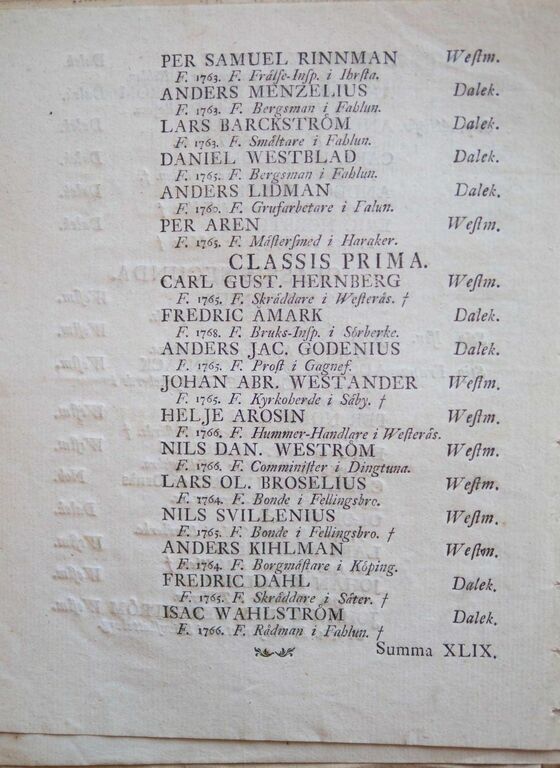 PER SAMUEL RINNMAN Westm.
F. 1763. F. Frälse-Insp. i Ihrsta.
ANDERS MENZELIUS Dalek.
F. 1763. F. Bergsman i Fahlun.
LARS BARCKSTRÖM Dalek.
F. 1763. F. Smältare i Fahlun.
DANIEL WESTBLAD Dalek.
F. 1765. F. Bergsman i Fahlun.
ANDERS LIDMAN Dalek.
F. 1760. F. Grufarbetare i Falun.
PER AREN Westm.
F. 1765. F. Mästersmed i Haraker.
CLASSIS PRIMA.
CARL GUST. HERNBERG Westm.
F. 1765. F. Skräddare i Westerås. †
FREDRIC ÅMARK Dalek.
F. 1768. F. Bruks-Insp. i Sörberke.
ANDERS JAC. GODENIUS Dalek.
F. 1765. F. Prost i Gagnef.
JOHAN ABR. WESTANDER Westm.
F. 1765. F. Kyrkoherde i Säby. †
HELJE AROSIN Westm.
F. 1766. F. Hummer-Handlare i Westerås.
NILS DAN. WESTRÖM Westm.
F. 1766. F. Comminister i Dingtuna.
LARS OL. BROSELIUS Westm.
F. 1764. F. Bonde i Fellingsbro.
NILS SVILLENIUS Westm.
F. 1765. F. Bonde i Fellingsbro. †
ANDERS KIHLMAN Westm.
F. 1764. F. Borgmästare i Köping.
FREDRIC DAHL Dalek.
F. 1765. F. Skräddare i Säter. †
ISAC WAHLSTRÖM Dalek.
F. 1766. F. Rådman i Fahlun. †
Summa XLIX.